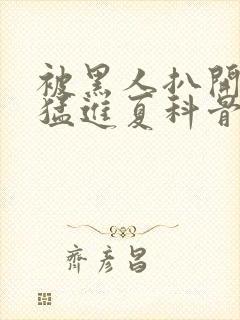 被黑人扒開
猛進夏科普
齊彥昌